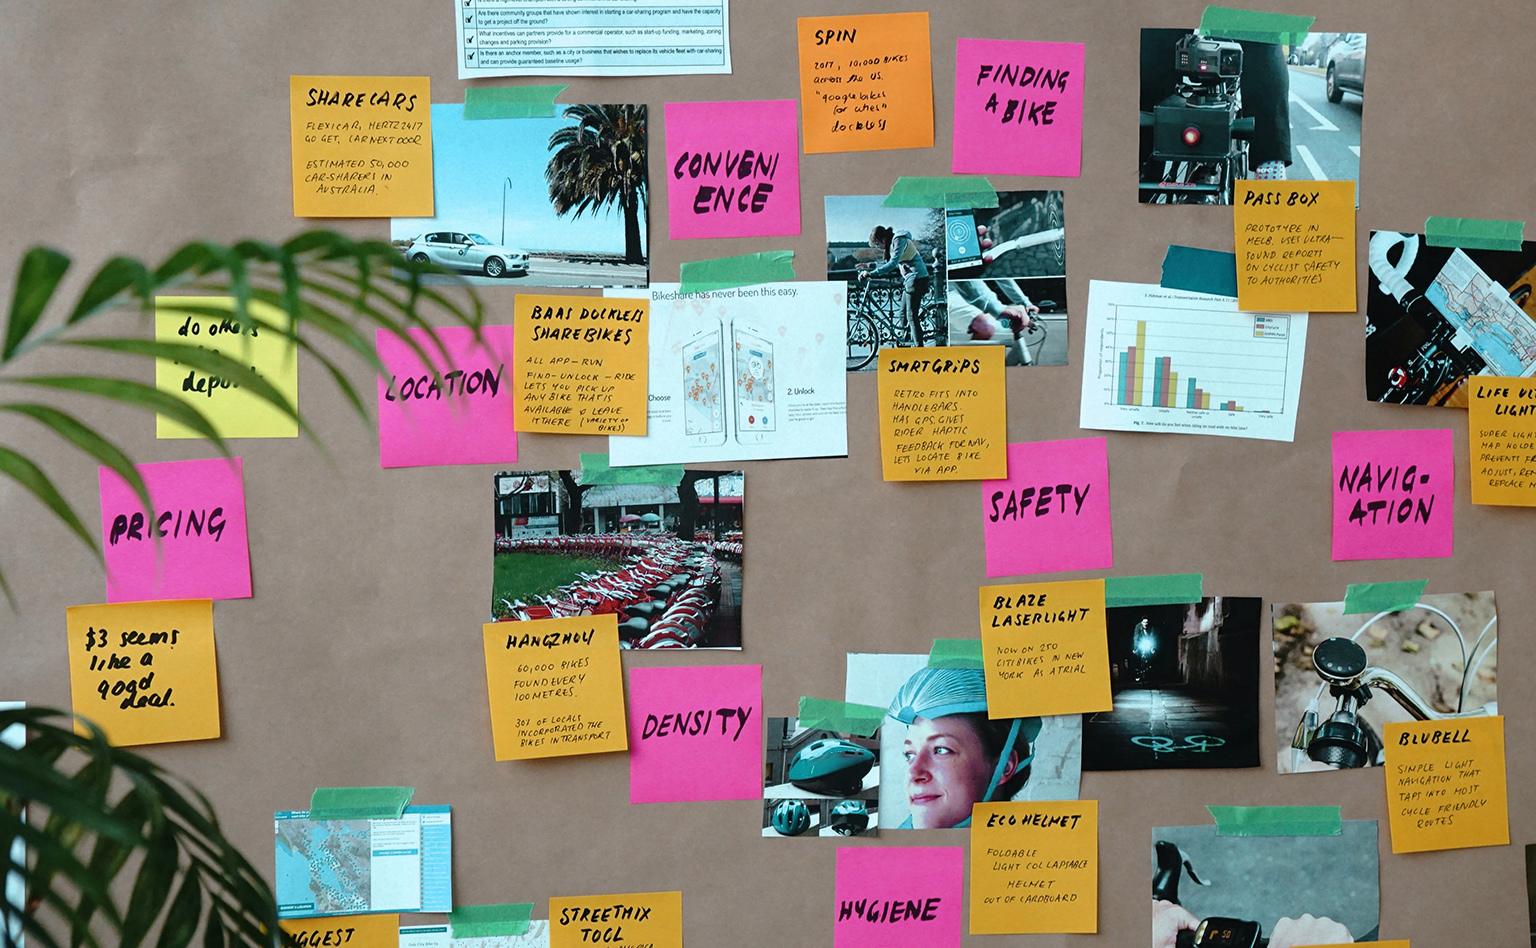 Are there community groups that have shown interest in starting a car-sharing program and have the capacity
to get a project off the ground?
What incentives can partners provide for a commercial operator, such as start-up funding, marketing, zoning
changes and parking provision?
Is there an anchor member, such as a city or business that wishes to replace its vehicle fleet with car-sharing
and can provide guaranteed baseline usage?
SHARECARS
FLEXICAR, HERTZ 24/7
GO GET, CAR NEXT DOOR
ESTIMATED 50,000
CAR-SHARERS IN
AUSTRALIA.
CONVENI
ENCE
SPIN
2017, 10,000 BIKES
across the US.
"google bikes
for cities"
dockless
FINDING
A BIKE
PASS BOX
PROTOTYPE IN
MELB. USES ULTRA-
SOUND. REPORTS
ON CYCLIST SAFETY
TO AUTHORITIES
do others
deposit
LOCATION
BAAS DOCKLESS
SHAREBIKES
ALL APP-RUN
FIND-UNLOCK-RIDE
LETS YOU PICK UP
ANY BIKE THAT IS
AVAILABLE & LEAVE
IT THERE (VARIETY OF
BIKES)
Bikeshare has never been this easy.
Choose
2. Unlock
SMRTGRIPS
RETRO FITS INTO
HANDLEBARS.
HAS GPS. GIVES
RIDER HAPTIC
FEEDBACK FOR NAV,
LETS LOCATE BIKE
VIA APP.
LIFE
LIGHT
SUPER LIGHT
MAP HOLDER
PREVENTS
ADJUST,
REPLACE
PRICING
SAFETY
NAVIG-
ATION
$3 seems
like a
good
deal.
HANGZHOU
60,000 BIKES
FOUND EVERY
100 METRES.
30% OF LOCALS
INCORPORATED THE
BIKES IN TRANSPORT
DENSITY
BLAZE
LASERLIGHT
NOW ON 250
CITIBIKES IN NEW
YORK AS A TRIAL
BLUBELL
SIMPLE LIGHT
NAVIGATION THAT
TAPS INTO MOST
CYCLE FRIENDLY
ROUTES
ECO HELMET
FOLDABLE
LIGHT COLLAPSABLE
HELMET
OUT OF CARDBOARD
HYGIENE
STREETMIX
TOOL